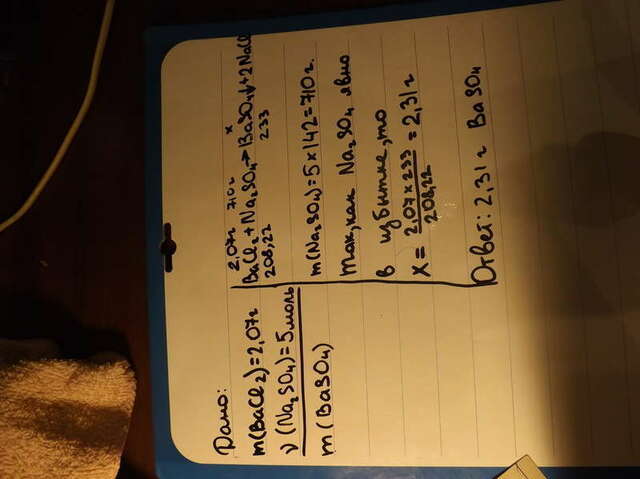 Дано:
m(BaCl₂)=2,07г
ν(Na₂SO₄)=5моль
m(BaSO₄)
2,07г 710г x
BaCl₂+Na₂SO₄→BaSO₄↓+2NaCl
208,22 233
m(Na₂SO₄)=5×142=710г.
Так, как Na₂SO₄ явно
в избытке, то
X = 2,07×233/208,22 = 2,31г
Ответ: 2,31г BaSO₄